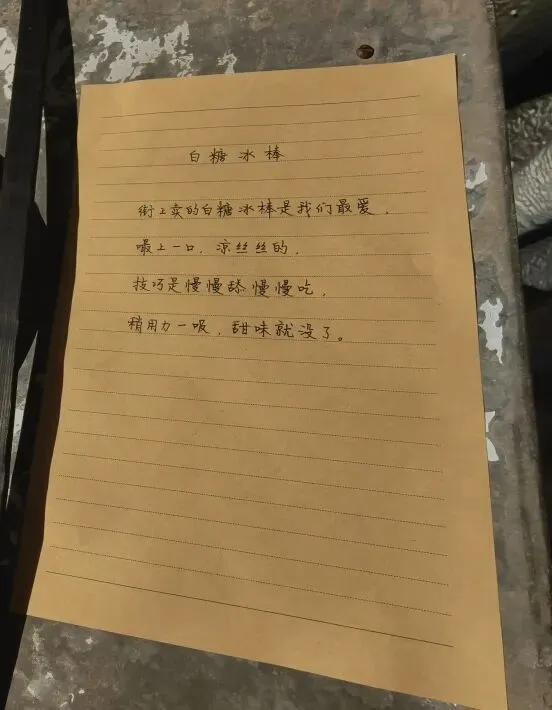 白糖冰棒
街上卖的白糖冰棒是我们最爆,
嘬上一口,凉丝丝的,
技巧是慢慢舔慢慢吃,
稍用力一吸,甜味就没了。